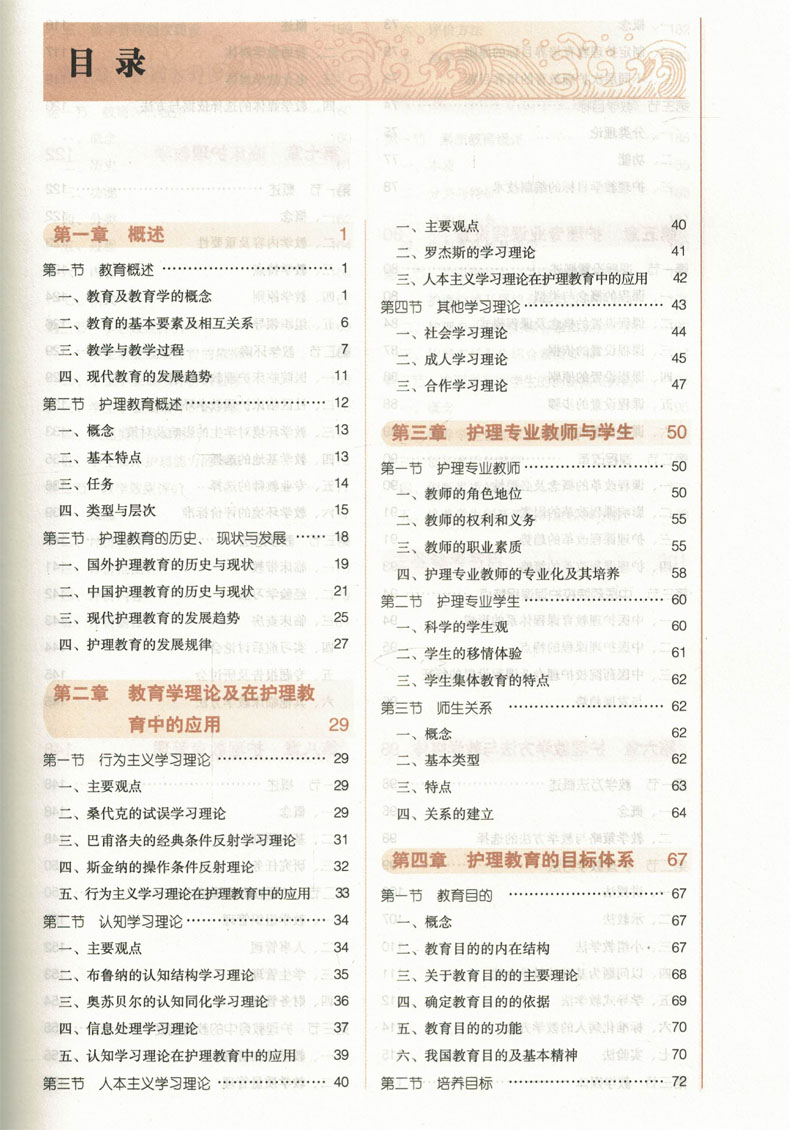 目录
第一章 概述 1
第一节 教育概述 …… 1
一、教育及教育学的概念 1
二、教育的基本要素及相互关系 6
三、教学与教学过程 7
四、现代教育的发展趋势 11
第二节 护理教育概述 …… 12
一、概念 13
二、基本特点 13
三、任务 14
四、类型与层次 15
第三节 护理教育的历史、现状与发展 …… 18
一、国外护理教育的历史与现状 19
二、中国护理教育的历史与现状 21
三、现代护理教育的发展趋势 25
四、护理教育的发展规律 27
第二章 教育学理论及在护理教
育中的应用 29
第一节 行为主义学习理论 …… 29
一、主要观点 29
二、桑代克的试误学习理论 29
三、巴甫洛夫的经典条件反射学习理论 31
四、斯金纳的操作条件反射理论 32
五、行为主义学习理论在护理教育中的应用 33
第二节 认知学习理论 …… 34
一、主要观点 34
二、布鲁纳的认知结构学习理论 35
三、奥苏贝尔的认知同化学习理论 36
四、信息处理学习理论 37
五、认知学习理论在护理教育中的应用 39
第三节 人本主义学习理论 …… 40
一、主要观点 40
二、罗杰斯的学习理论 41
三、人本主义学习理论在护理教育中的应用 42
第四节 其他学习理论 …… 43
一、社会学习理论 44
二、成人学习理论 45
三、合作学习理论 47
第三章 护理专业教师与学生 50
第一节 护理专业教师 …… 50
一、教师的角色地位 50
二、教师的权利和义务 55
三、教师的职业素质 55
四、护理专业教师的专业化及其培养 58
第二节 护理专业学生 …… 60
一、科学的学生观 60
二、学生的移情体验 61
三、学生集体教育的特点 62
第三节 师生关系 …… 62
一、概念 62
二、基本类型 62
三、特点 63
四、关系的建立 64
第四章 护理教育的目标体系 67
第一节 教育目的 …… 67
一、概念 67
二、教育目的的内在结构 67
三、关于教育目的的主要理论 68
四、确定教育目的的依据 69
五、教育目的的功能 70
六、我国教育目的及基本精神 70
第二节 培养目标 …… 72